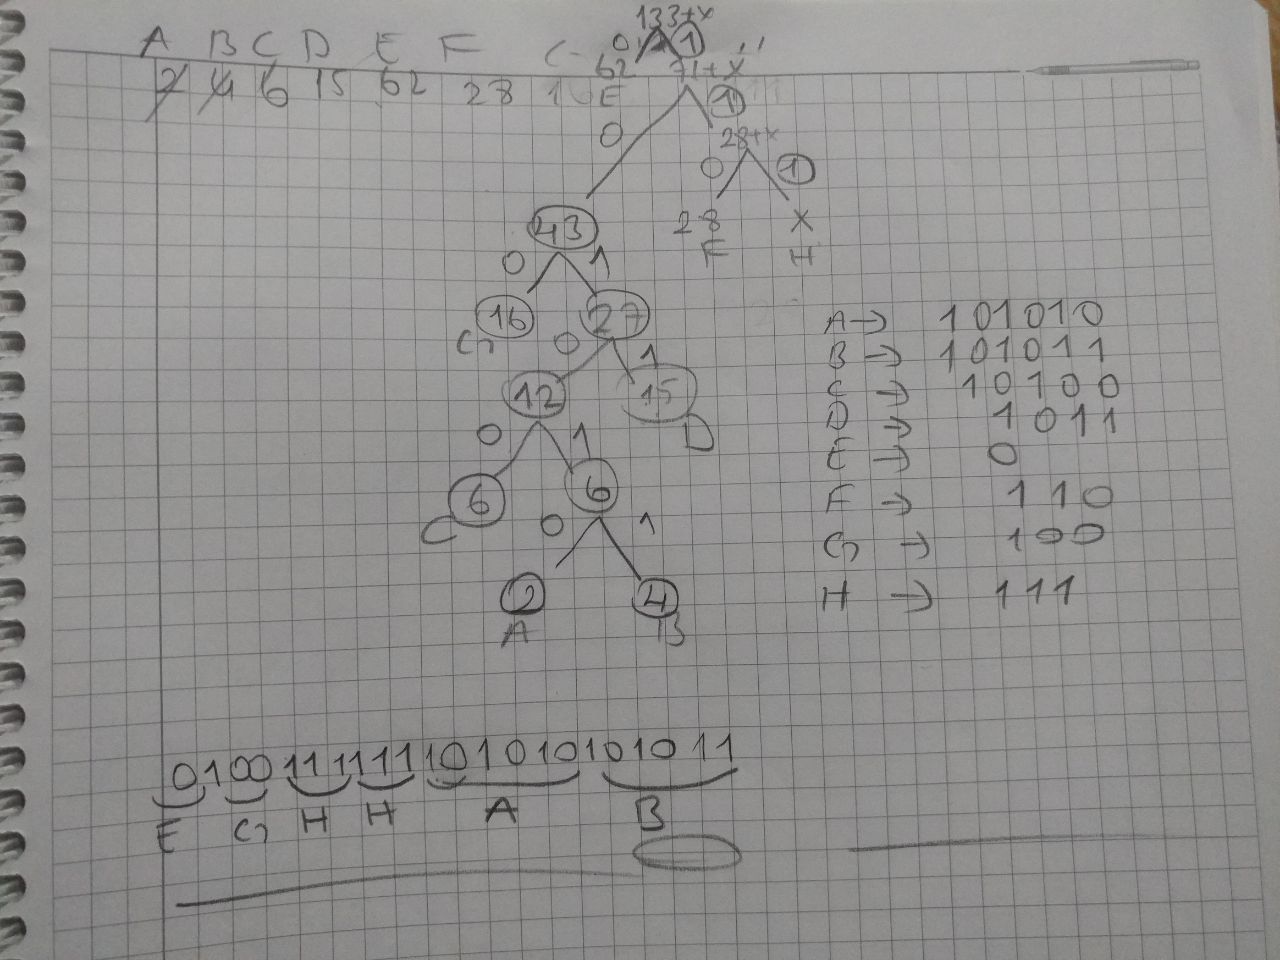 133+x
A B C D E F G
0 1
2 4 6 15 62 28 16
62 71+x
E
0 1
28+x
0 1
43
28 x
F H
0 1
16 27
G
0 1
12 15
D
0 1
6 6
C
0 1
2 4
A B
A → 101010
B → 101011
C → 10100
D → 1011
E → 0
F → 110
G → 100
H → 111
0100111111101010101011
E G H H A B